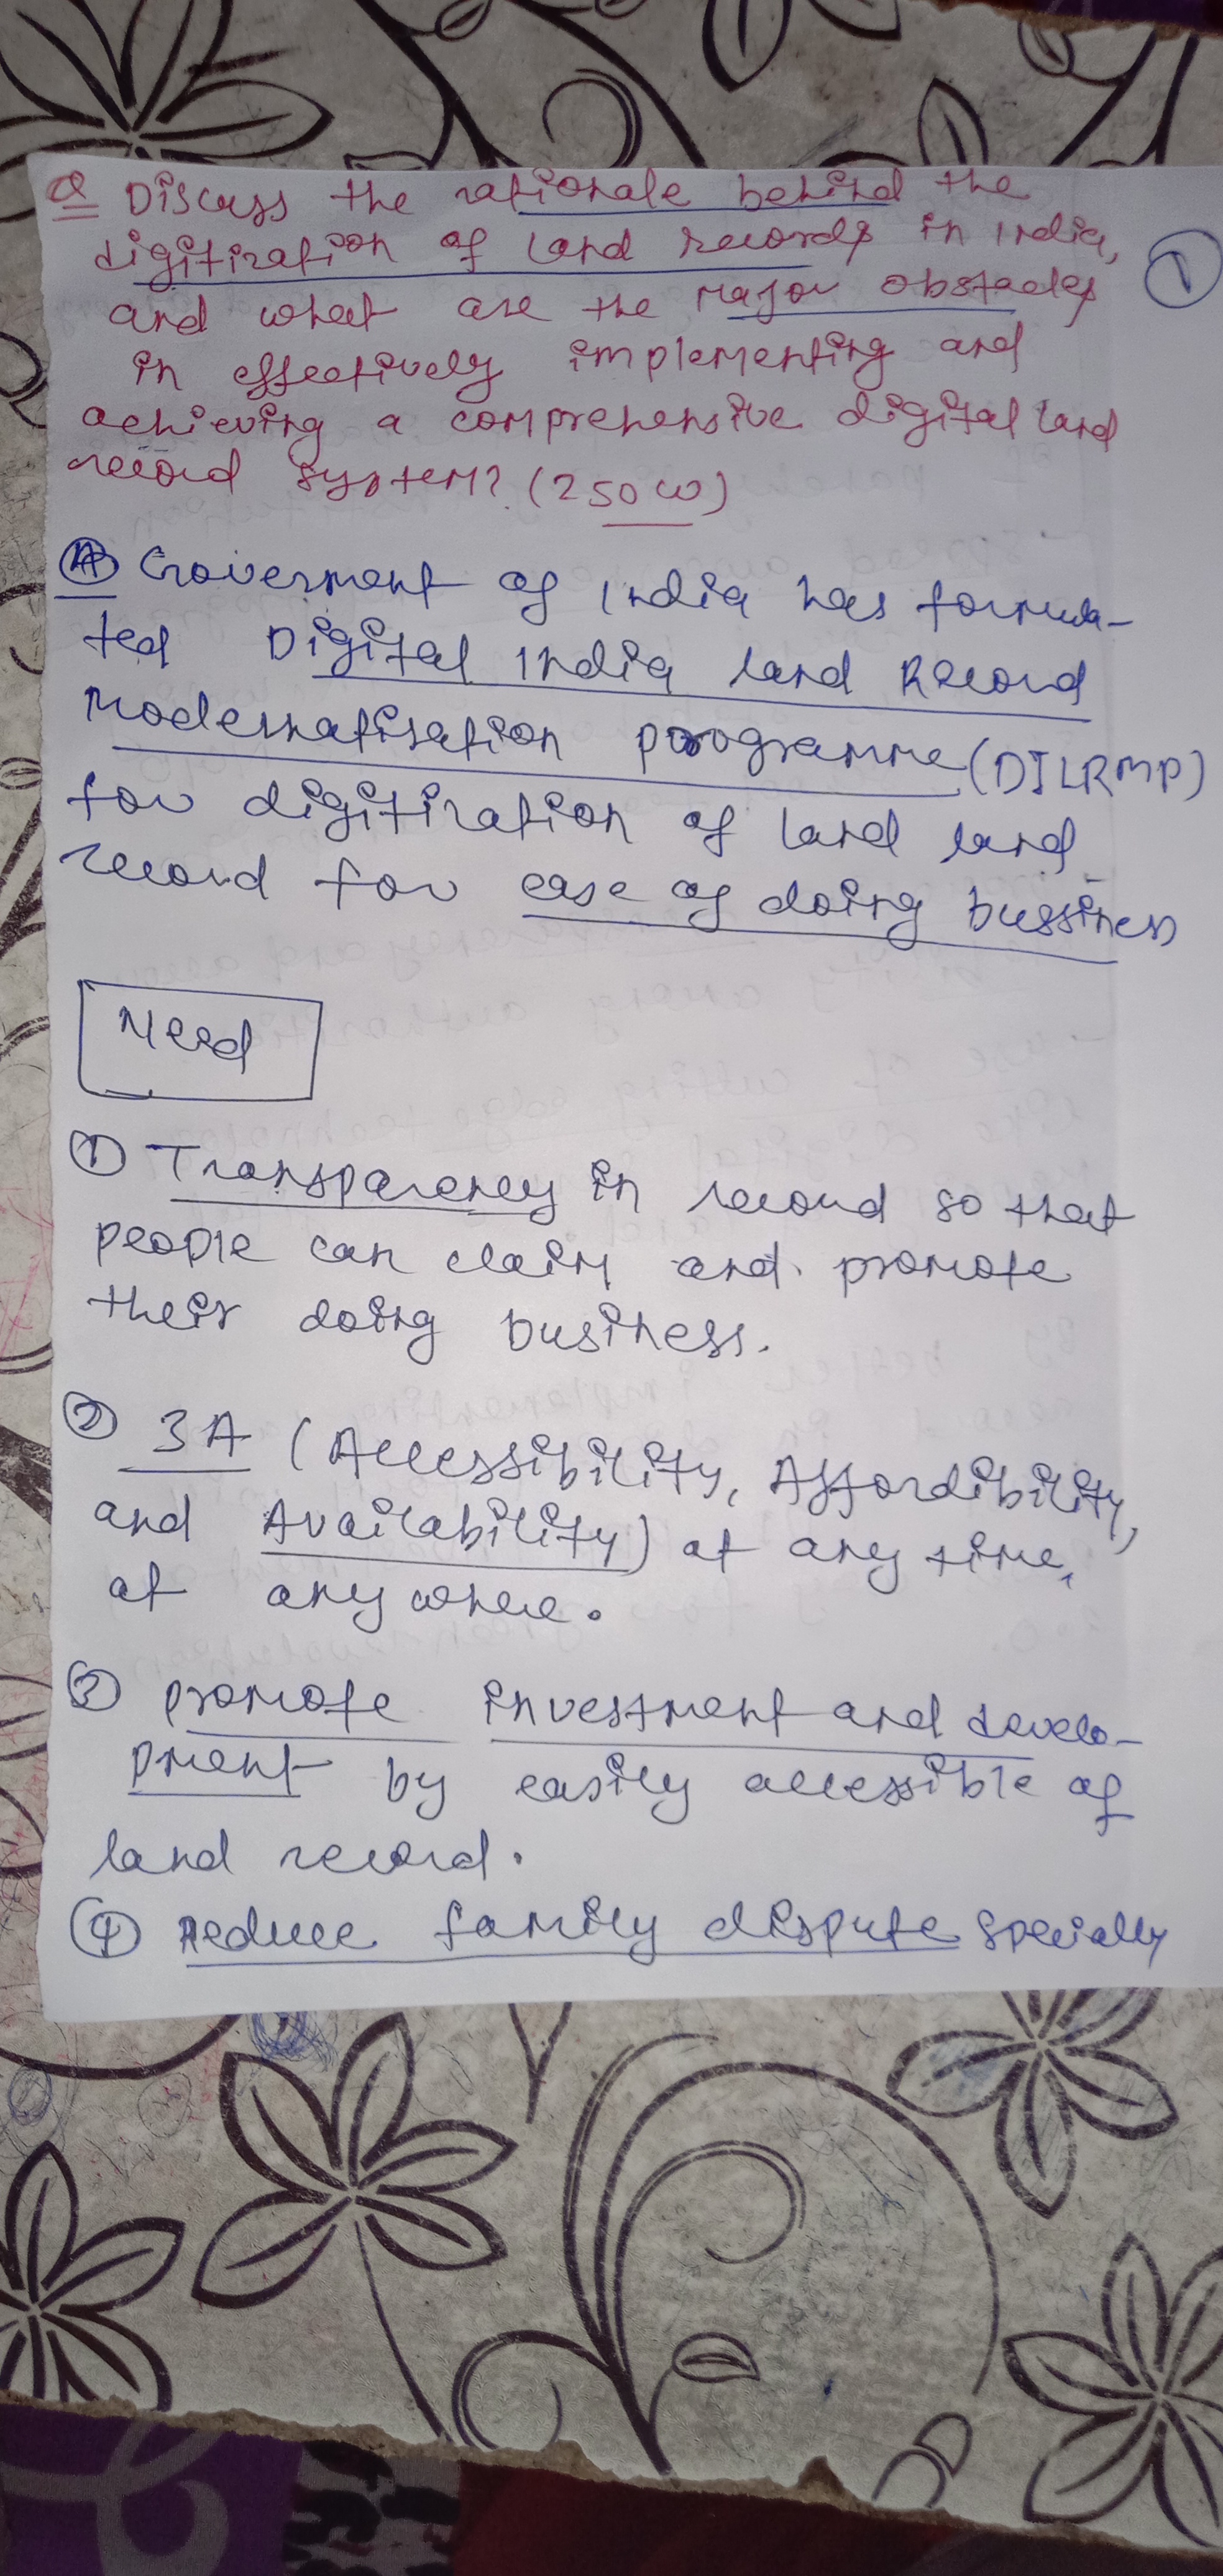 Q Discuss the rationale behind the
digitization of land records in India,
and what are the major obstacles
in effectively implementing and
achieving a comprehensive digital land
record system? (250 W)
1
A Goverment of India has formula-
ted Digital India land Record
Modernatisation programme (DILRMP)
for digitization of land land
record for ease of doing bussiness
Need
① Transparency in record so that
people can claim and promote
their doing business.
② 3A (Accessibility, Affordibility,
and Availability) at any time,
at any where.
③ promote investment and develo-
pment by easily accessible of
land record.
④ Reduce family dispute specially